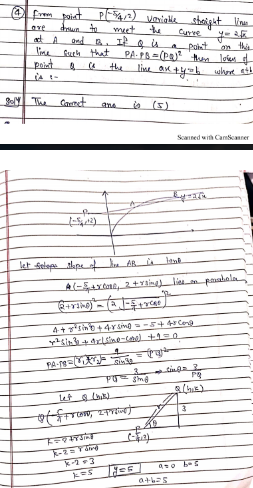 ④ From point P(-5/4, 2) variable straight lines
are drawn to meet the curve y = 2√x
at A and B. If Q is a point on this
line such that PA·PB = (PQ)² then locus of
point Q is the line ax + y = b where a+b
is :-
The Correct ans is (5)
Scanned with CamScanner
y = 2√x
A
P
(-5/4, 2)
let slope of line AB is tanθ
(-5/4 + r cosθ, 2 + r sinθ) lies on parabola
4 + r² sin²θ + 4r sinθ = -5 + 4r cosθ
r² sin²θ + 4r(sinθ - cosθ) + 9 = 0
PA·PB = |r₁ r₂| = 9/sin²θ = (PQ)²
PQ = 3/sinθ ⇒ sinθ = 3/PQ
let Q (h,k)
Q(h,k)
Q(-5/4 + r cosθ, 2 + r sinθ)
3
k = 2 + r sinθ
P
(-5/4, 2)
θ
k - 2 = r sinθ
k - 2 = 3
k = 5
y = 5
a = 0 b = 5
a + b = 5